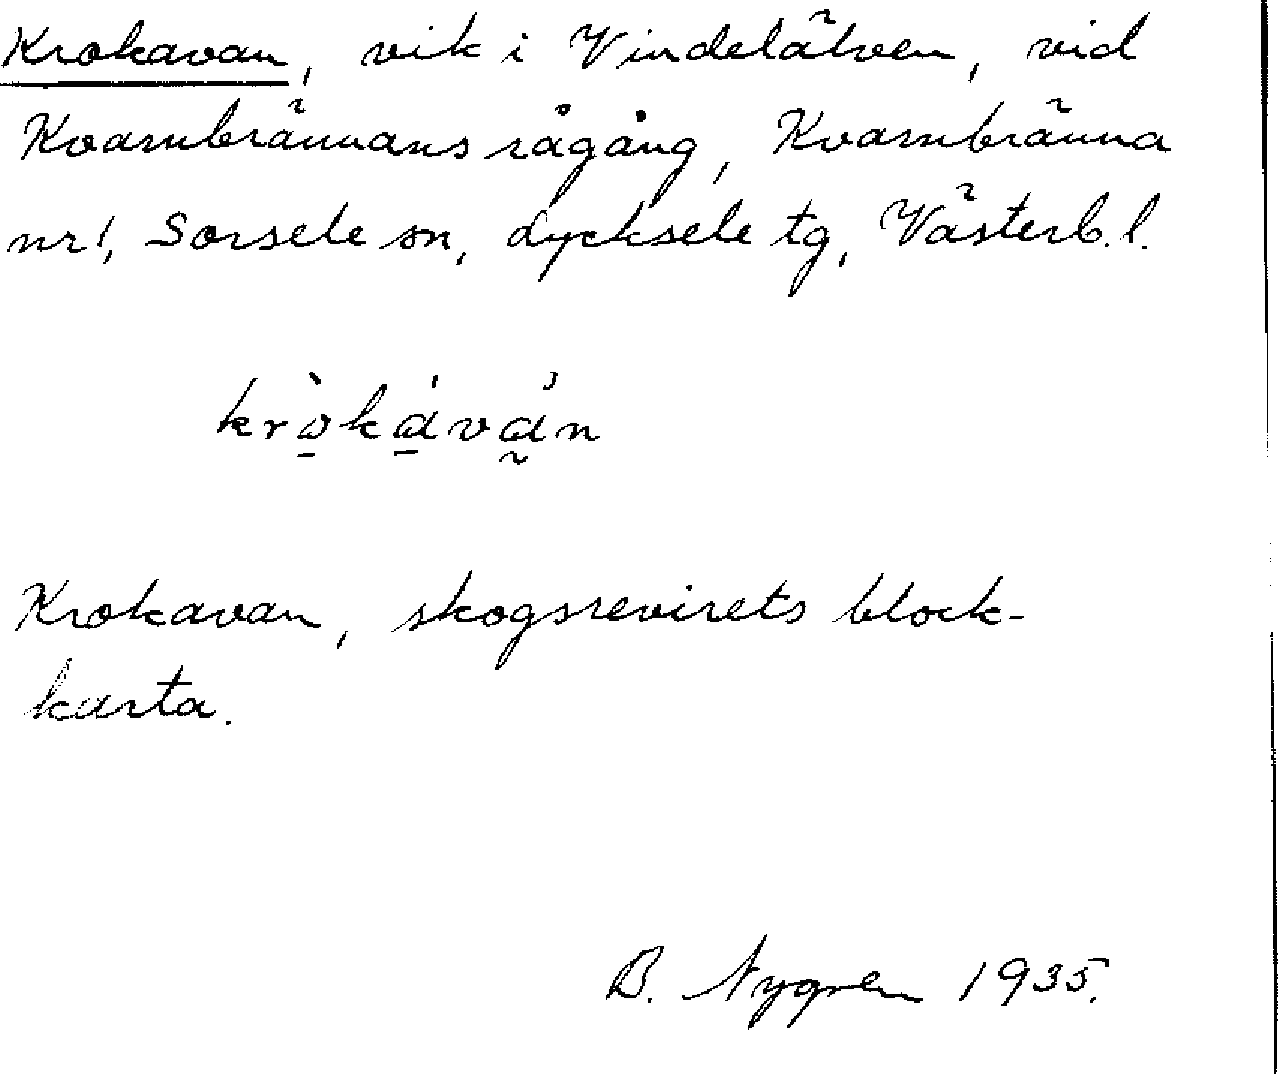 Krokavan, vik i Vindelälven, vid
Kvarnbrännans rågång, Kvarnbränna
nr 1, Sorsele sn, Lycksele tg, Västerb. l.
krò̱ká̱vá̰n
Krokavan, skogsrevirets block-
karta.
B. Nygren 1935.